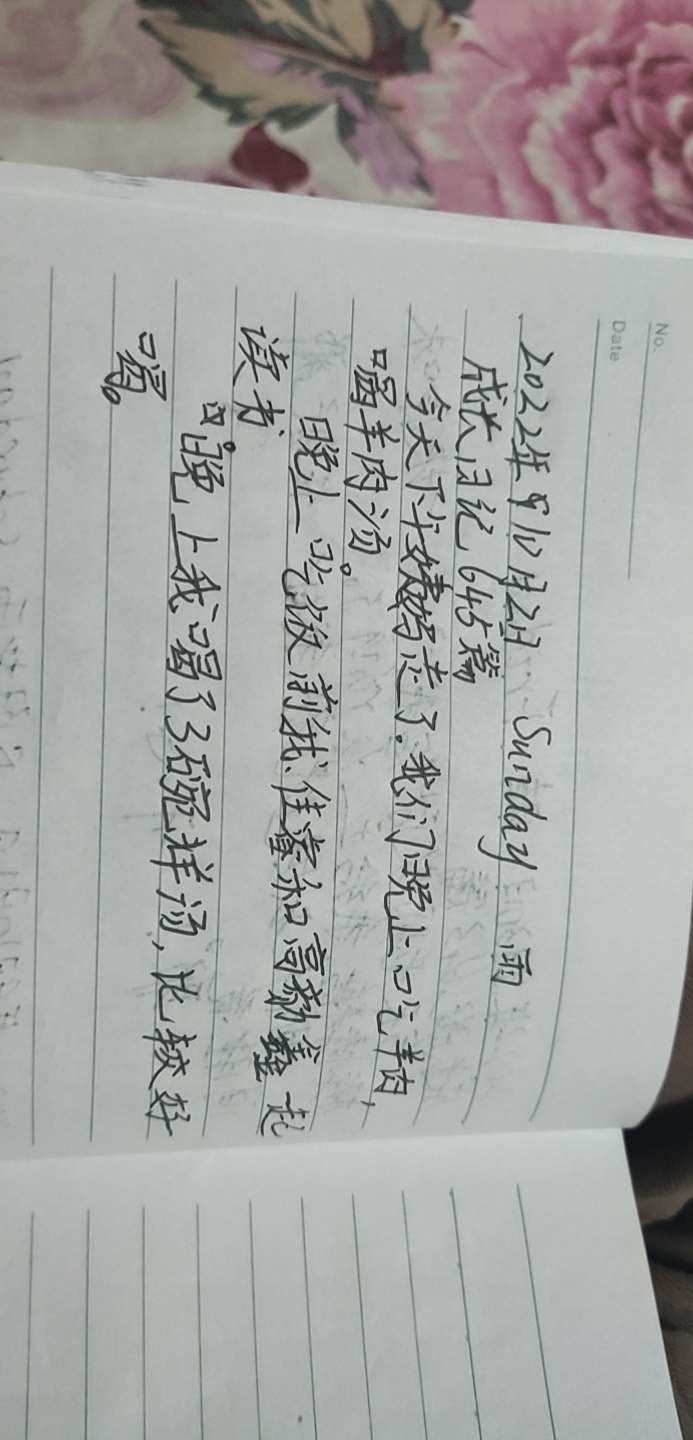 No.
Date
2022年10月2日 Sunday 雨
成长日记645篇
今天下午姨妈走了。我们晚上吃羊肉,
喝羊肉汤。
晚上吃饭前我、佳睿和高勃鑫一起
读书
。晚上我喝了3碗羊汤,比较好
喝。